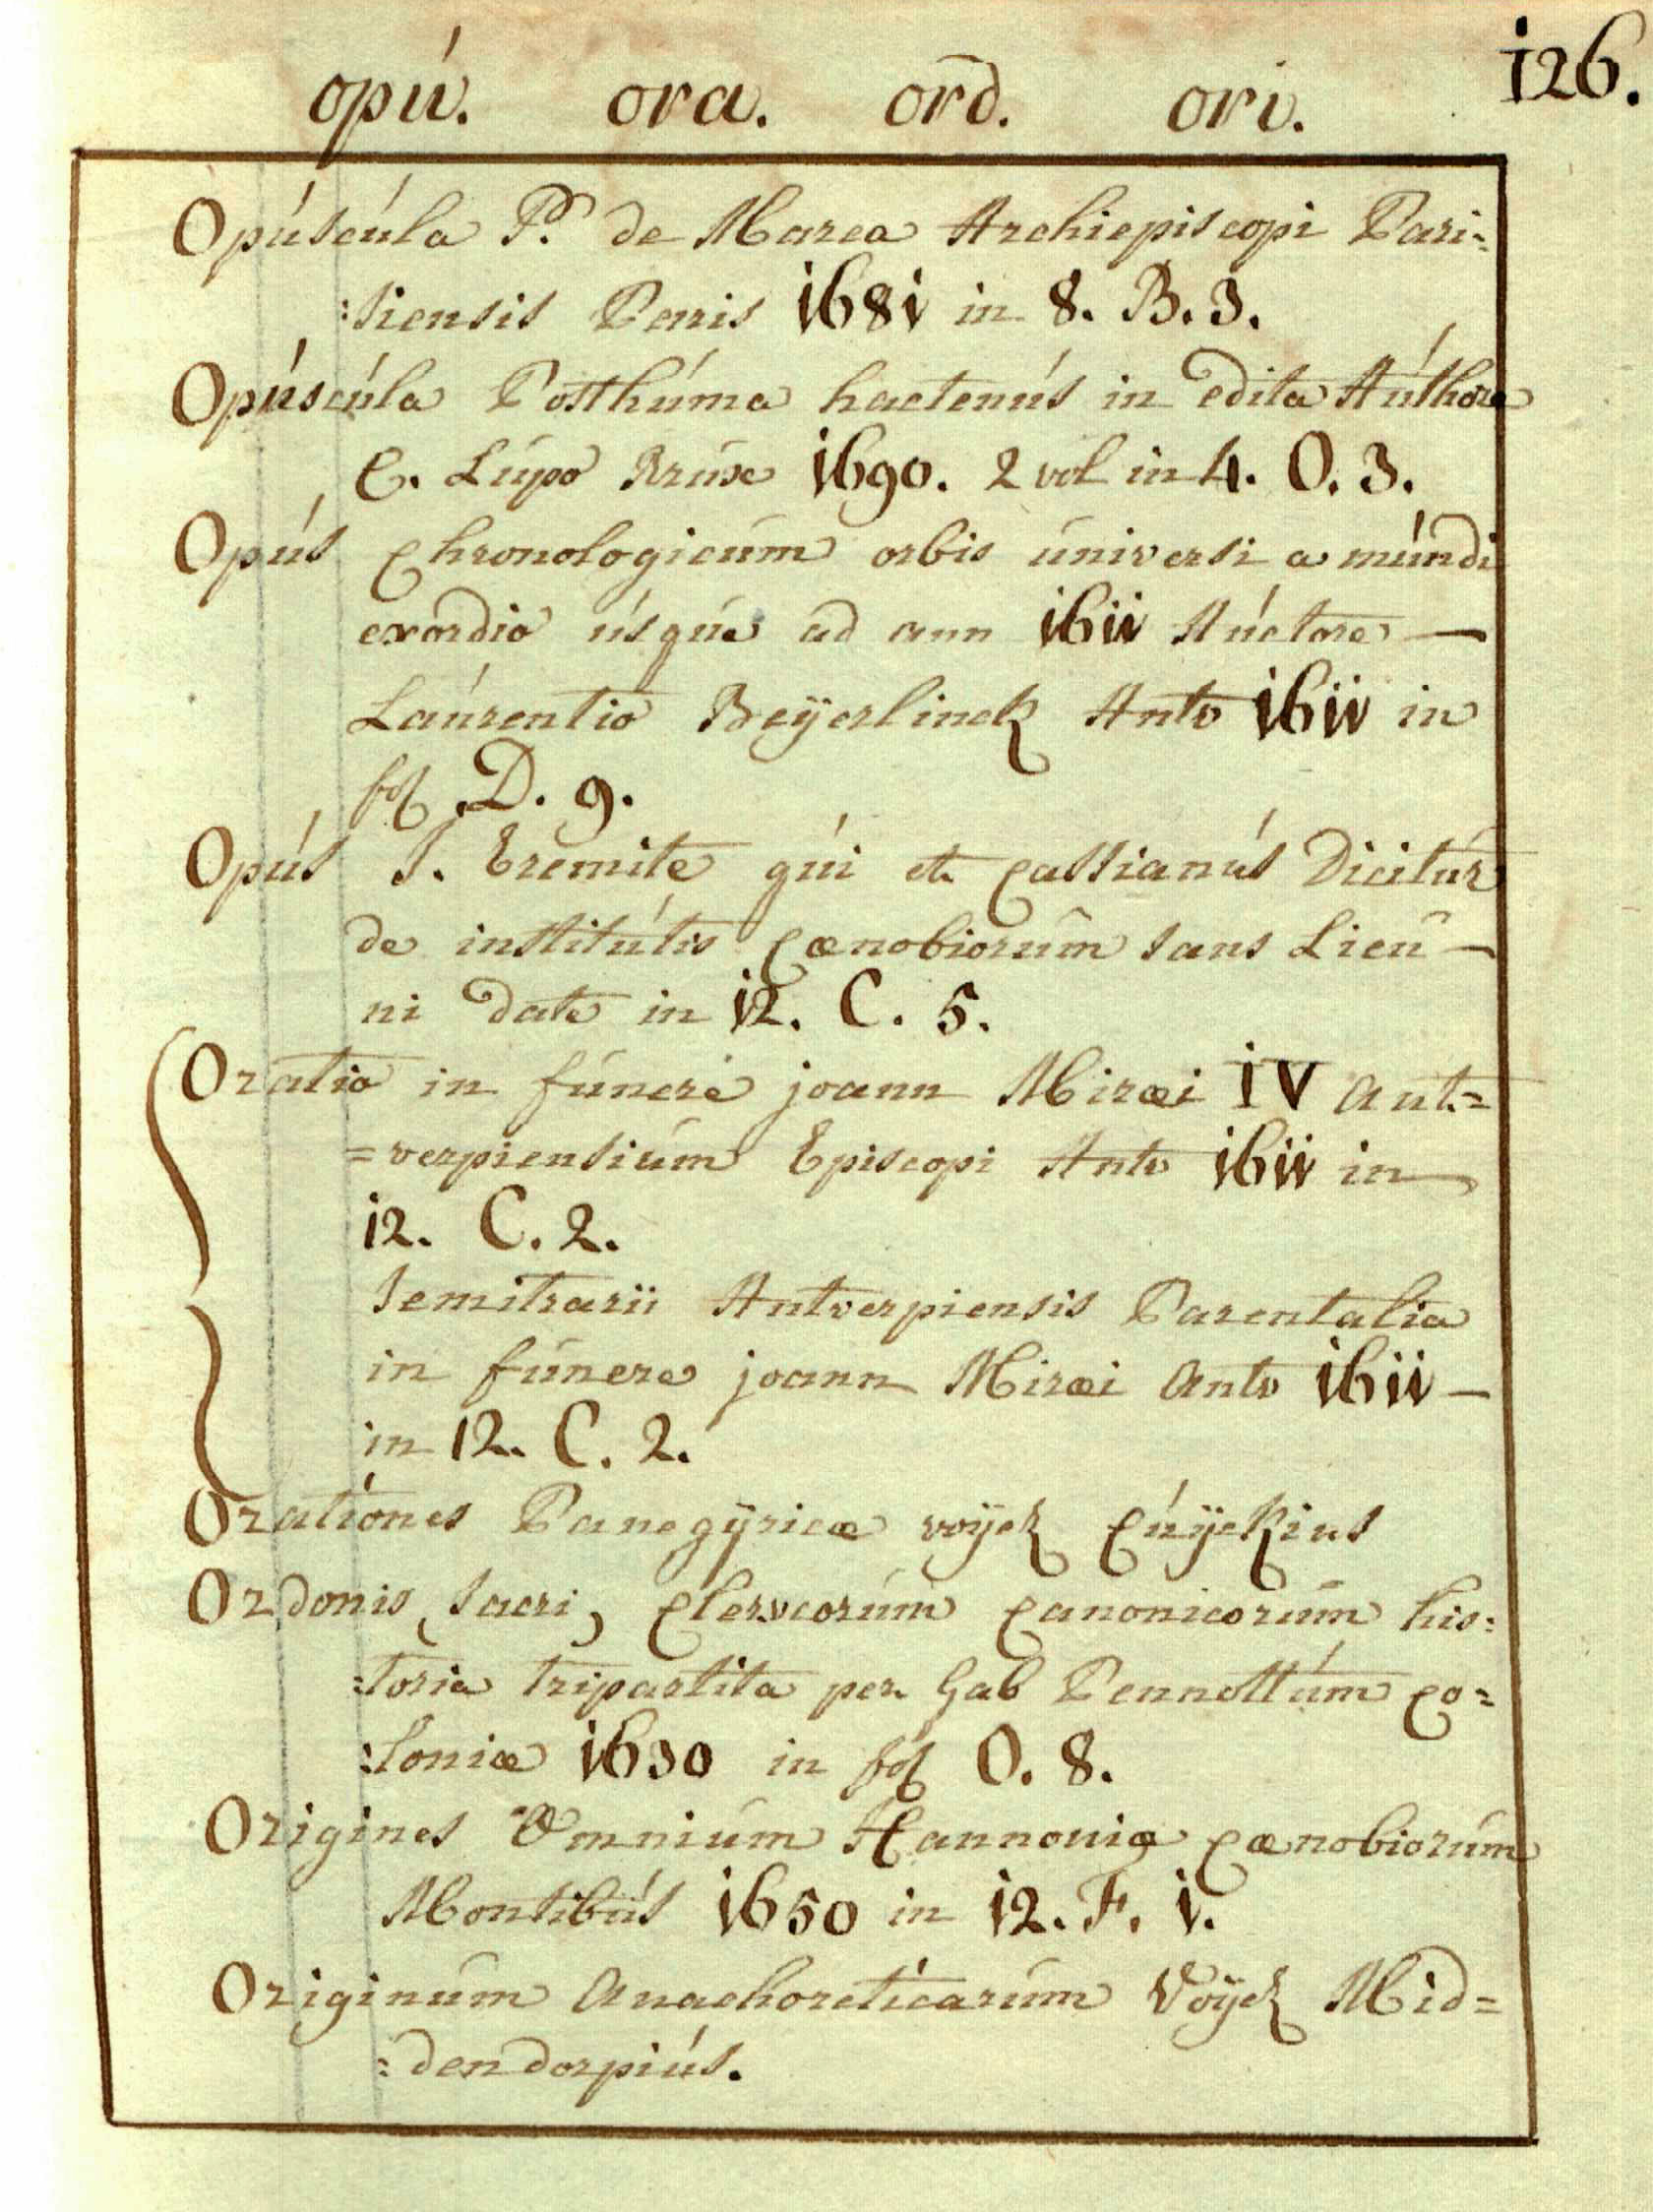 126.
opú. ora. ord. ori.
Opúscúla P. de Marca Archiepiscopi Pari=
:siensis Paris 1681 in 8. B. 3.
Opúscúla Posthúma hactenús in edita Aúthore
C. Lúpo Brúxe 1690. 2 vol in 4. O. 3.
Opús chronologicúm orbis úniversi a múndi
exordio úsqúe ad ann 1611 Aúctore —
Laúrentio Beÿerlinck Antv 1611 in
fol D. 9.
Opús J. Eremite qúi et cassianús Dicitúr
de institútis cœnobiorúm sans Lieú —
ni date in 12. C. 5.
Oratio in fúnere joann Miræi IV ant=
=verpiensiúm Episcopi Antv 1611 in
12. C. 2.
Semitrarii Antverpiensis Parentalia
in fúnere joann Miræi Antv 1611 —
in 12. C. 2.
Orationes Panegÿricæ voÿez Cúÿckius
Ordonis (sacri) clervcorúm canonicorúm his=
=toria tripartita per Gab Pennottúm co=
:loniæ 1630 in fol O. 8.
Origines Omniúm Hannoniæ cœnobiorúm
Montibús 1650 in 12. F. 1.
Originúm Anachoreticarúm Voÿez Mid=
=dendorpiús.